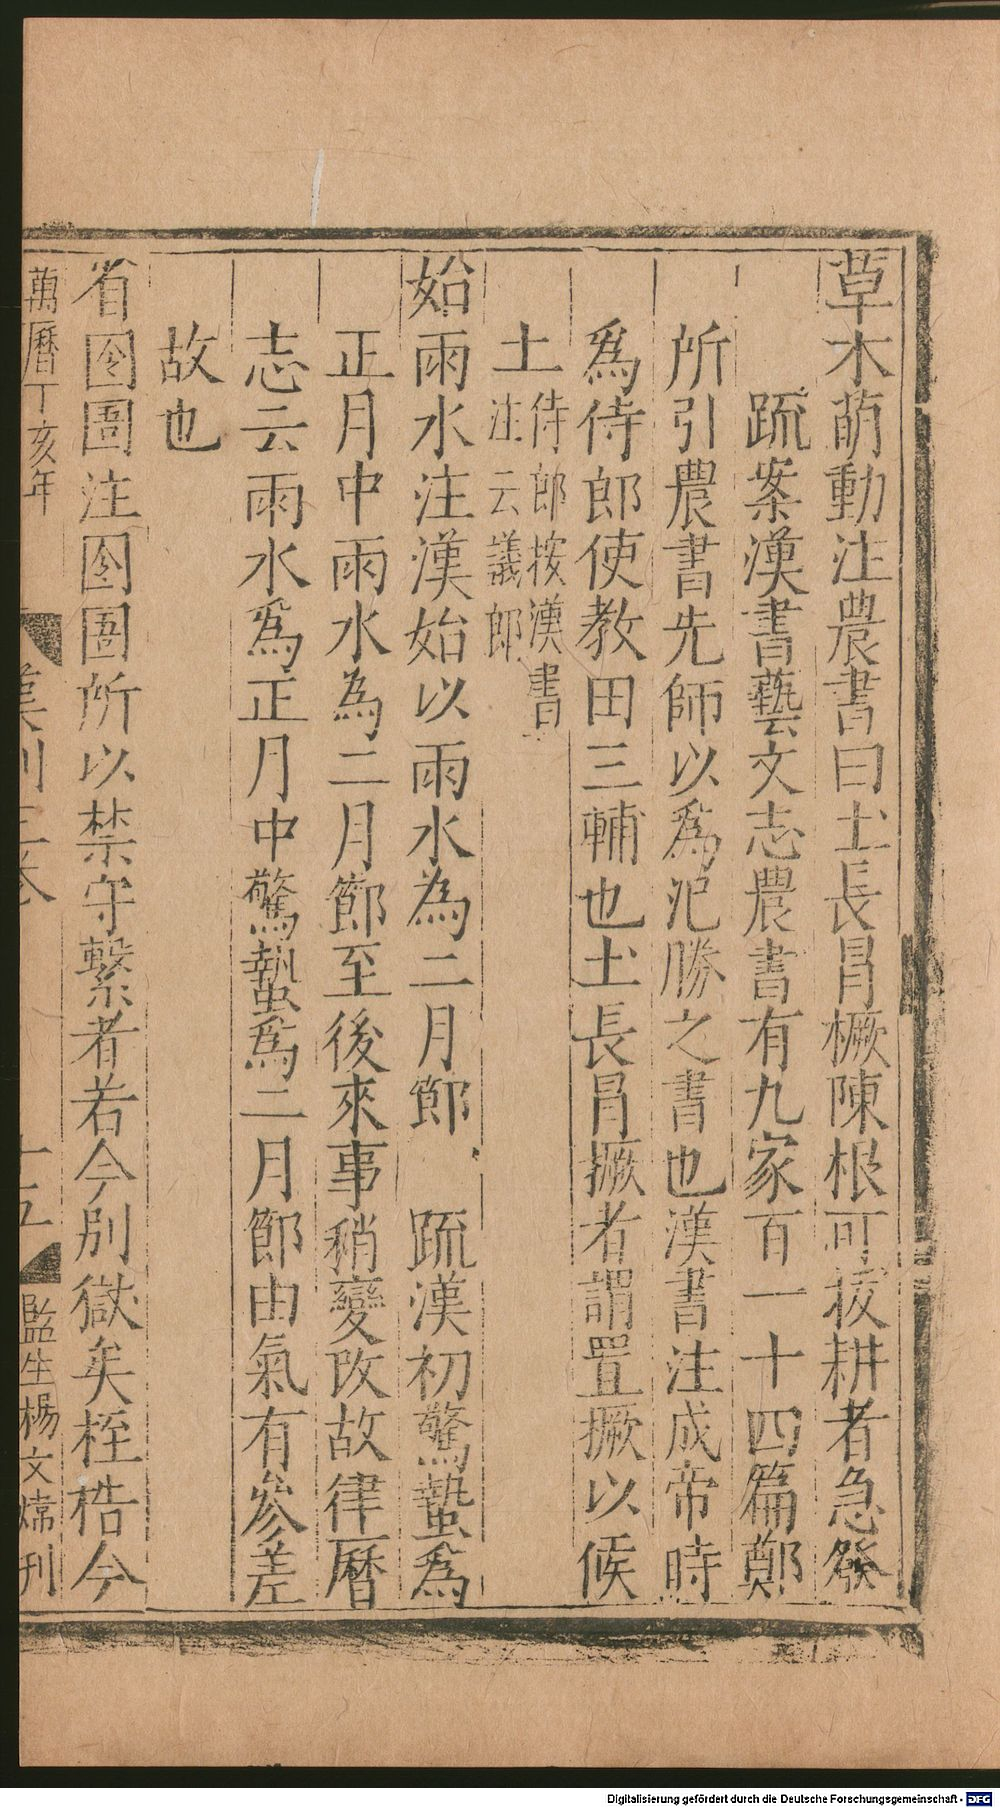 草木萌動注農書曰土長冐橛陳根可拔耕者急發
疏案漢書藝文志農書有九家百一十四篇鄭
所引農書先師以爲氾勝之書也漢書注成帝時
爲侍郎使教田三輔也土長冐撅者謂置撅以候
土侍郎按漢書
注云議郎
始雨水注漢始以雨水為二月節 疏漢初驚蟄爲
正月中雨水為二月節至後來事稍變改故律曆
志云雨水爲正月中驚蟄爲二月節由氣有參差
故也
省囹圄注囹圄所以禁守繫者若今別獄矣桎梏今
萬曆丁亥年
十五
監生楊文
刊
Digitalisierung gefördert durch die Deutsche Forschungsgemeinschaft - DFG